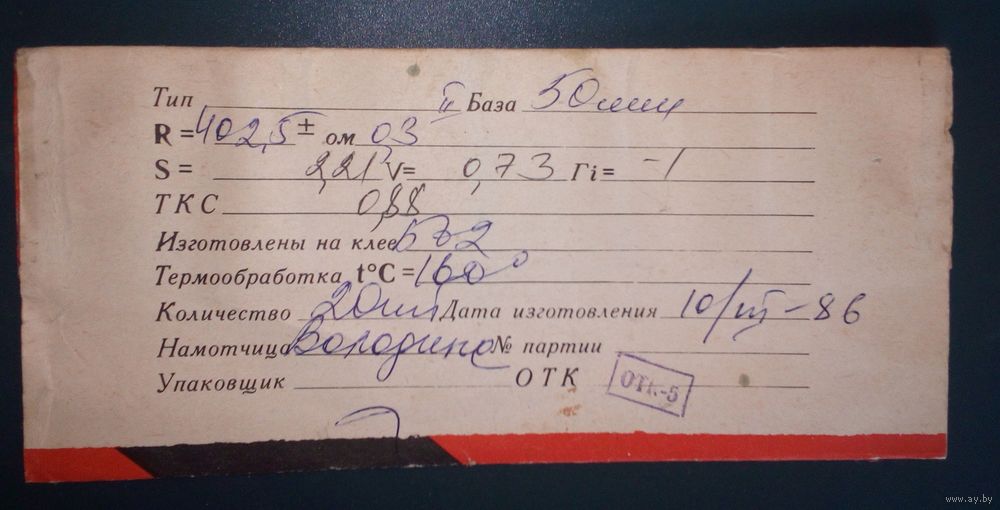 Тип II База 50мм
R = 402,5 ± ом 0,3
S = 2,21 V= 0,73 Гi= -1
ТКС 0,88
Изготовлены на клее
Термообработка t°C = 160°
Количество 20шт Дата изготовления 10/III-86
Намотчица Володина № партии
Упаковщик ОТК ОТК-5
www.ay.by